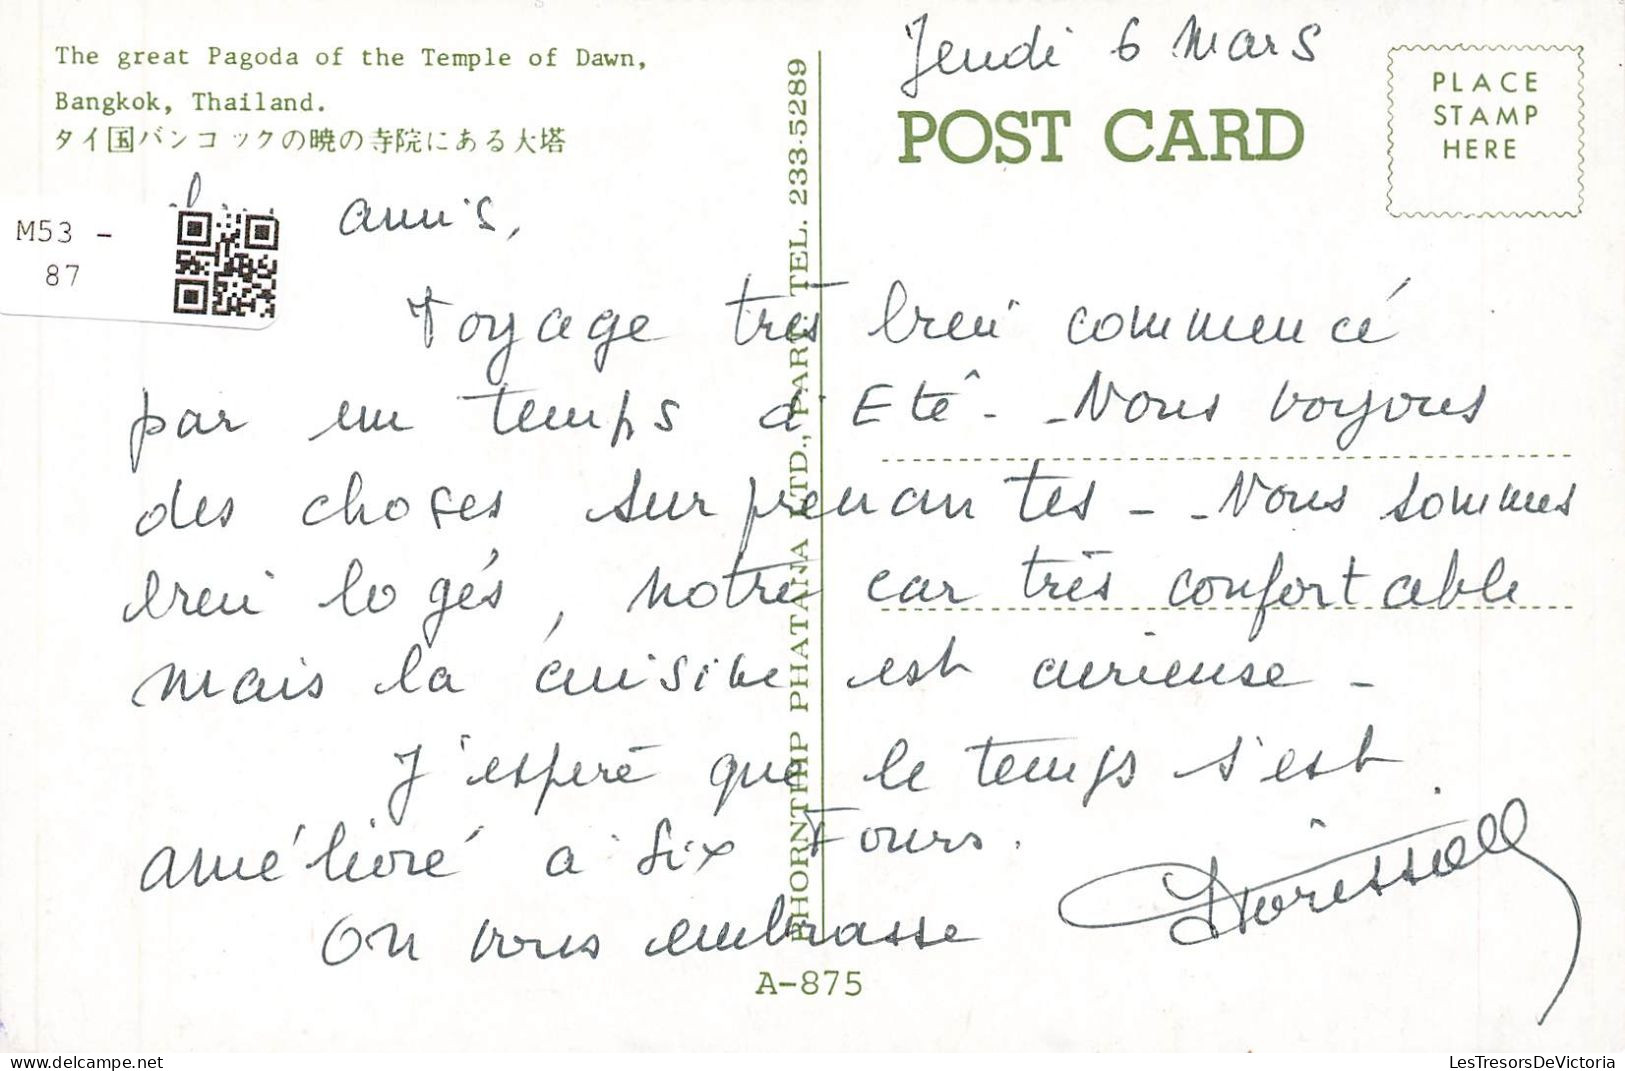 The great Pagoda of the Temple of Dawn,
Bangkok, Thailand.
タイ国バンコックの暁の寺院にある大塔
Jeudi 6 Mars
POST CARD
PLACE
STAMP
HERE
M53 -
87
amis,
Voyage très bien commencé
par un temps d'Eté - - Nous voyons
des choses surprenantes - - Nous sommes
bien logés, notre car très confortable
mais la cuisine est curieuse -
J'espère que le temps s'est
amélioré à Six Fours.
On vous embrasse
PHORNTHIP PHATANA LTD., PART. TEL. 233-5289
A-875
LesTresorsDeVictoria
https://www.delcampe.net